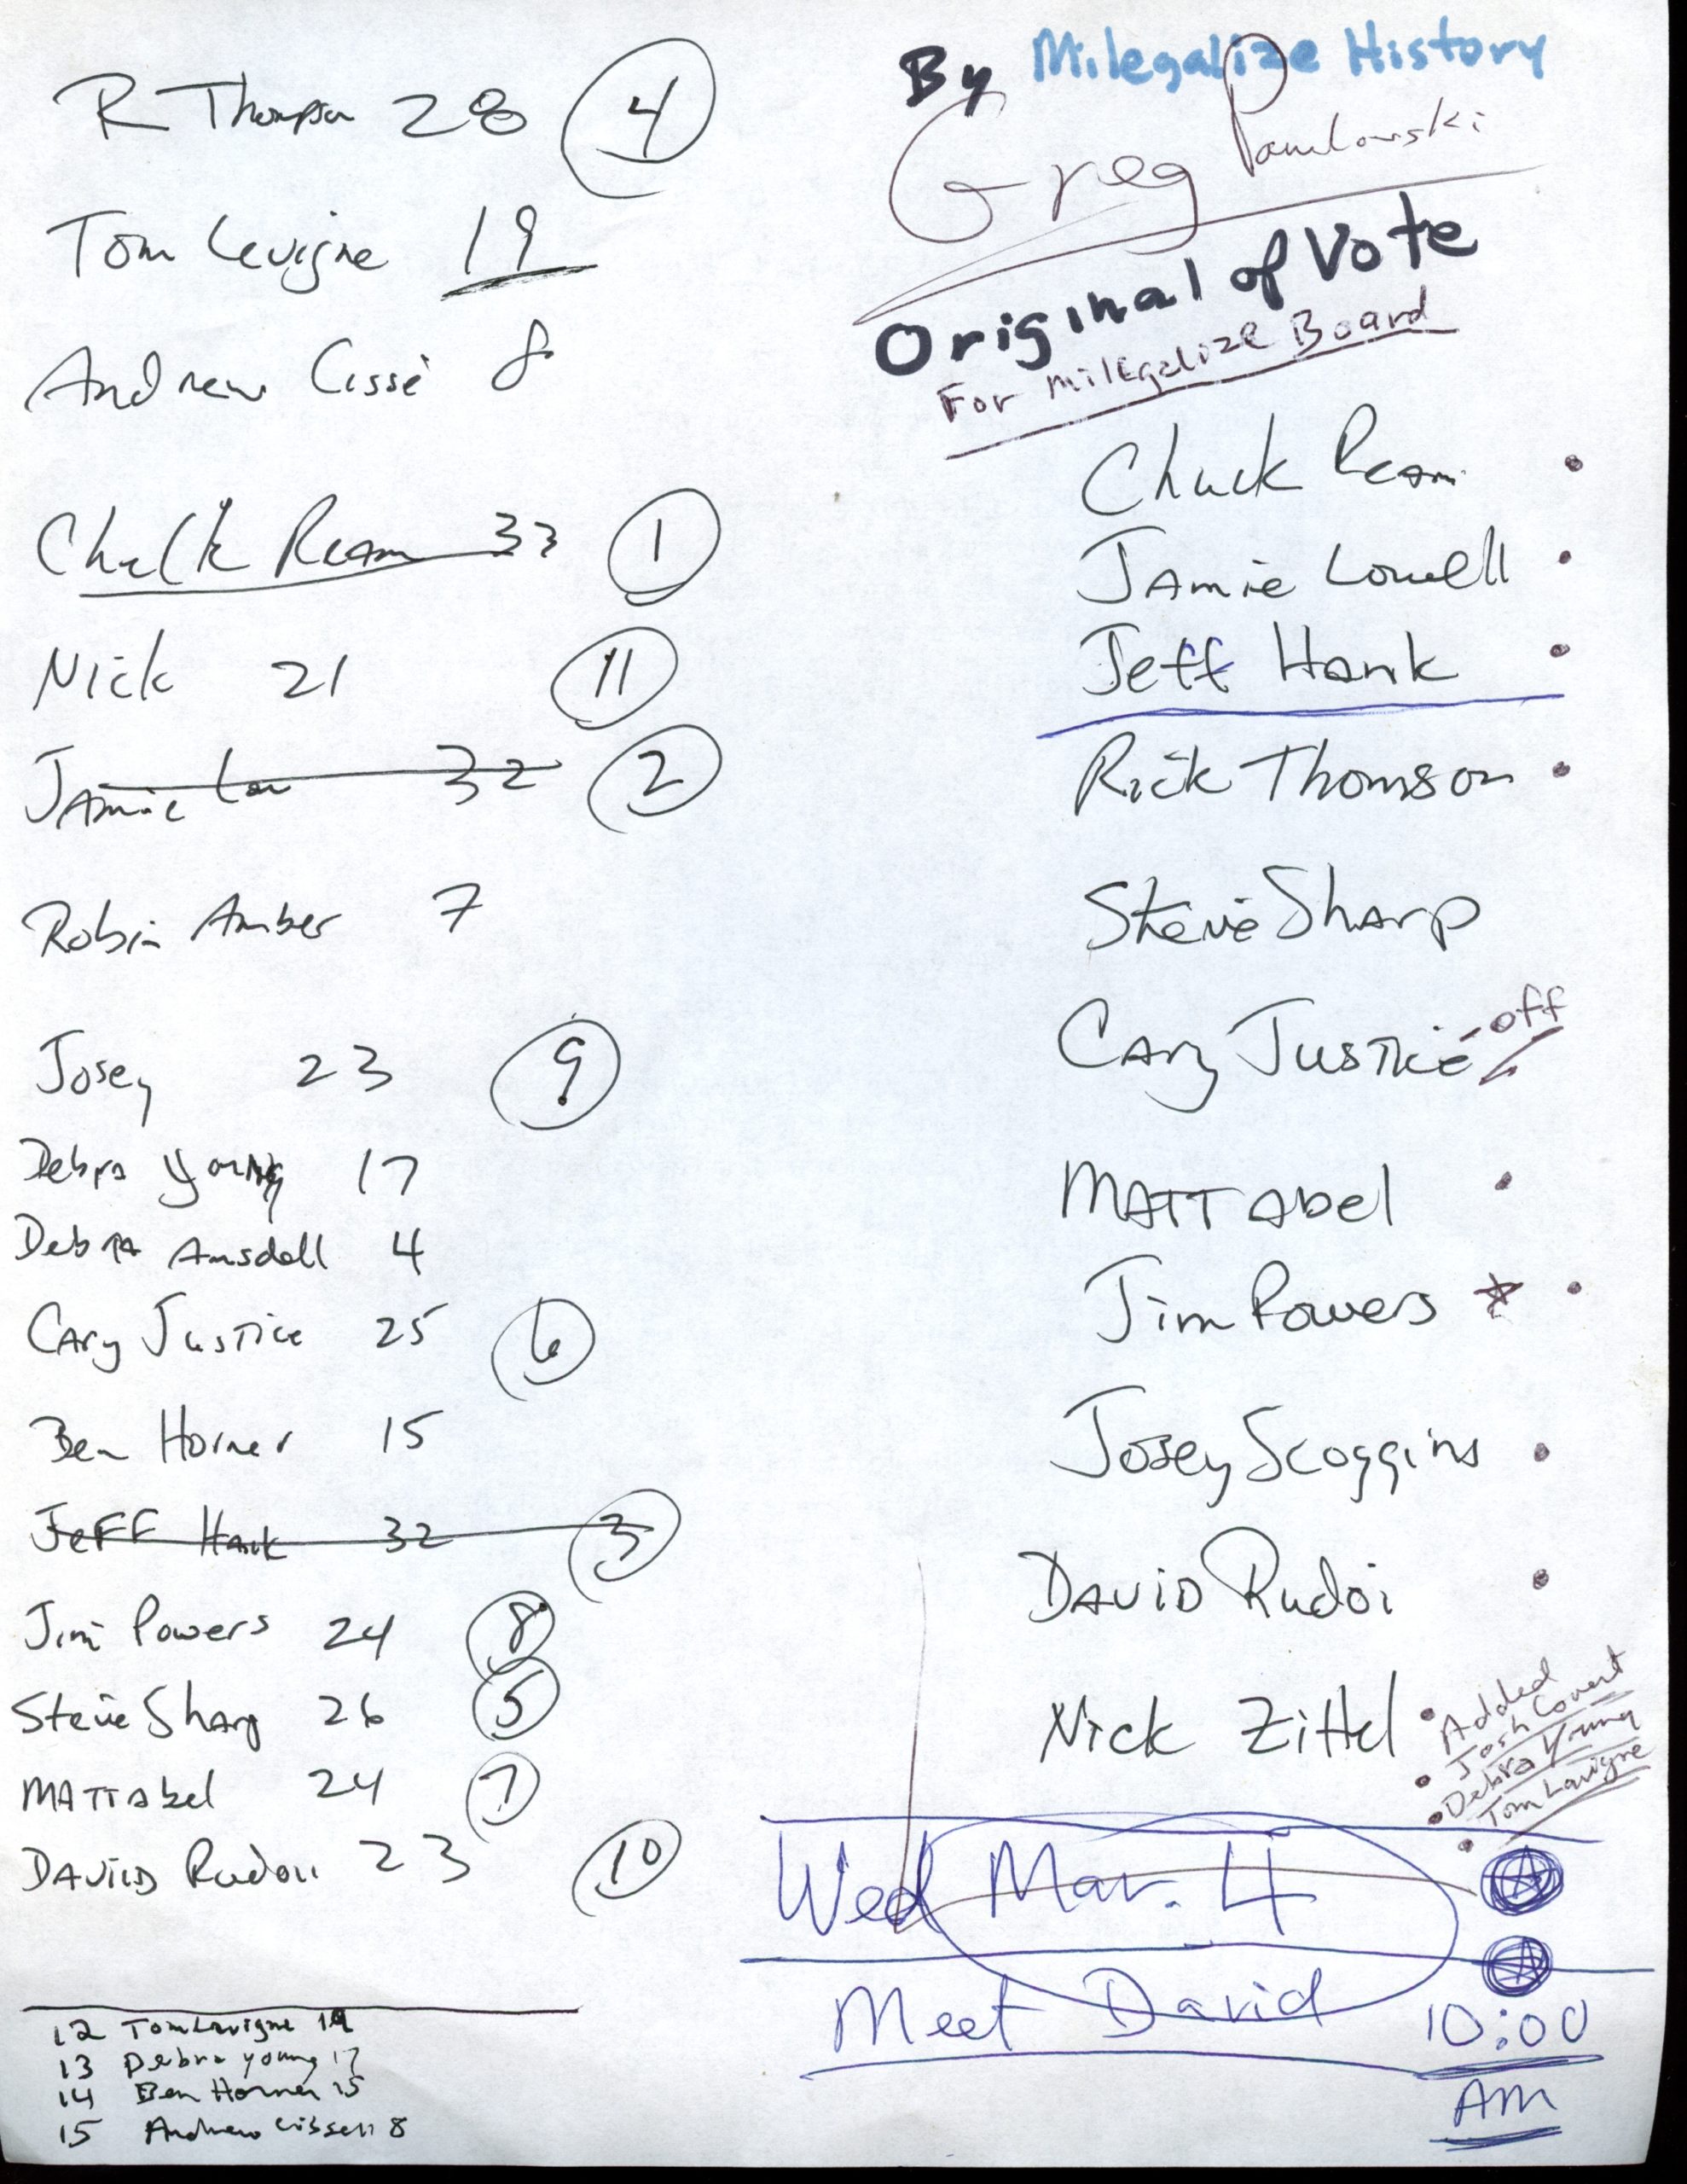 R Thompson 28 4
Tom Levigne 19
Andrew Cissé 8
Chuck Ream 33 1
Nick 21 11
Jamie Low 32 2
Robin Amber 7
Josey 23 9
Debra Young 17
Debra Amsdell 4
Cary Justice 25 6
Ben Horner 15
JeFF Hank 32 3
Jim Powers 24 8
Steve Sharp 26 5
MATT Abel 24 7
DAVID Rudoii 23 10
12 Tom Lavigne 19
13 Debra young 17
14 Ben Horner 15
15 Andrew 8
By Milegalize History
Greg Pawlowski
Original of Vote
For Milegalize Board
Chuck Ream
Jamie Lowell
Jeff Hank
Rick Thomson
Steve Sharp
Cary Justice - off
MATT Abel
Jim Powers ☆
Josey Scoggins
DAVID Rudoi
Nick Zittel
Added
Josh Covert
Debra Young
Tom Lavigne
Wed Mar. 4
Meet David 10:00
AM